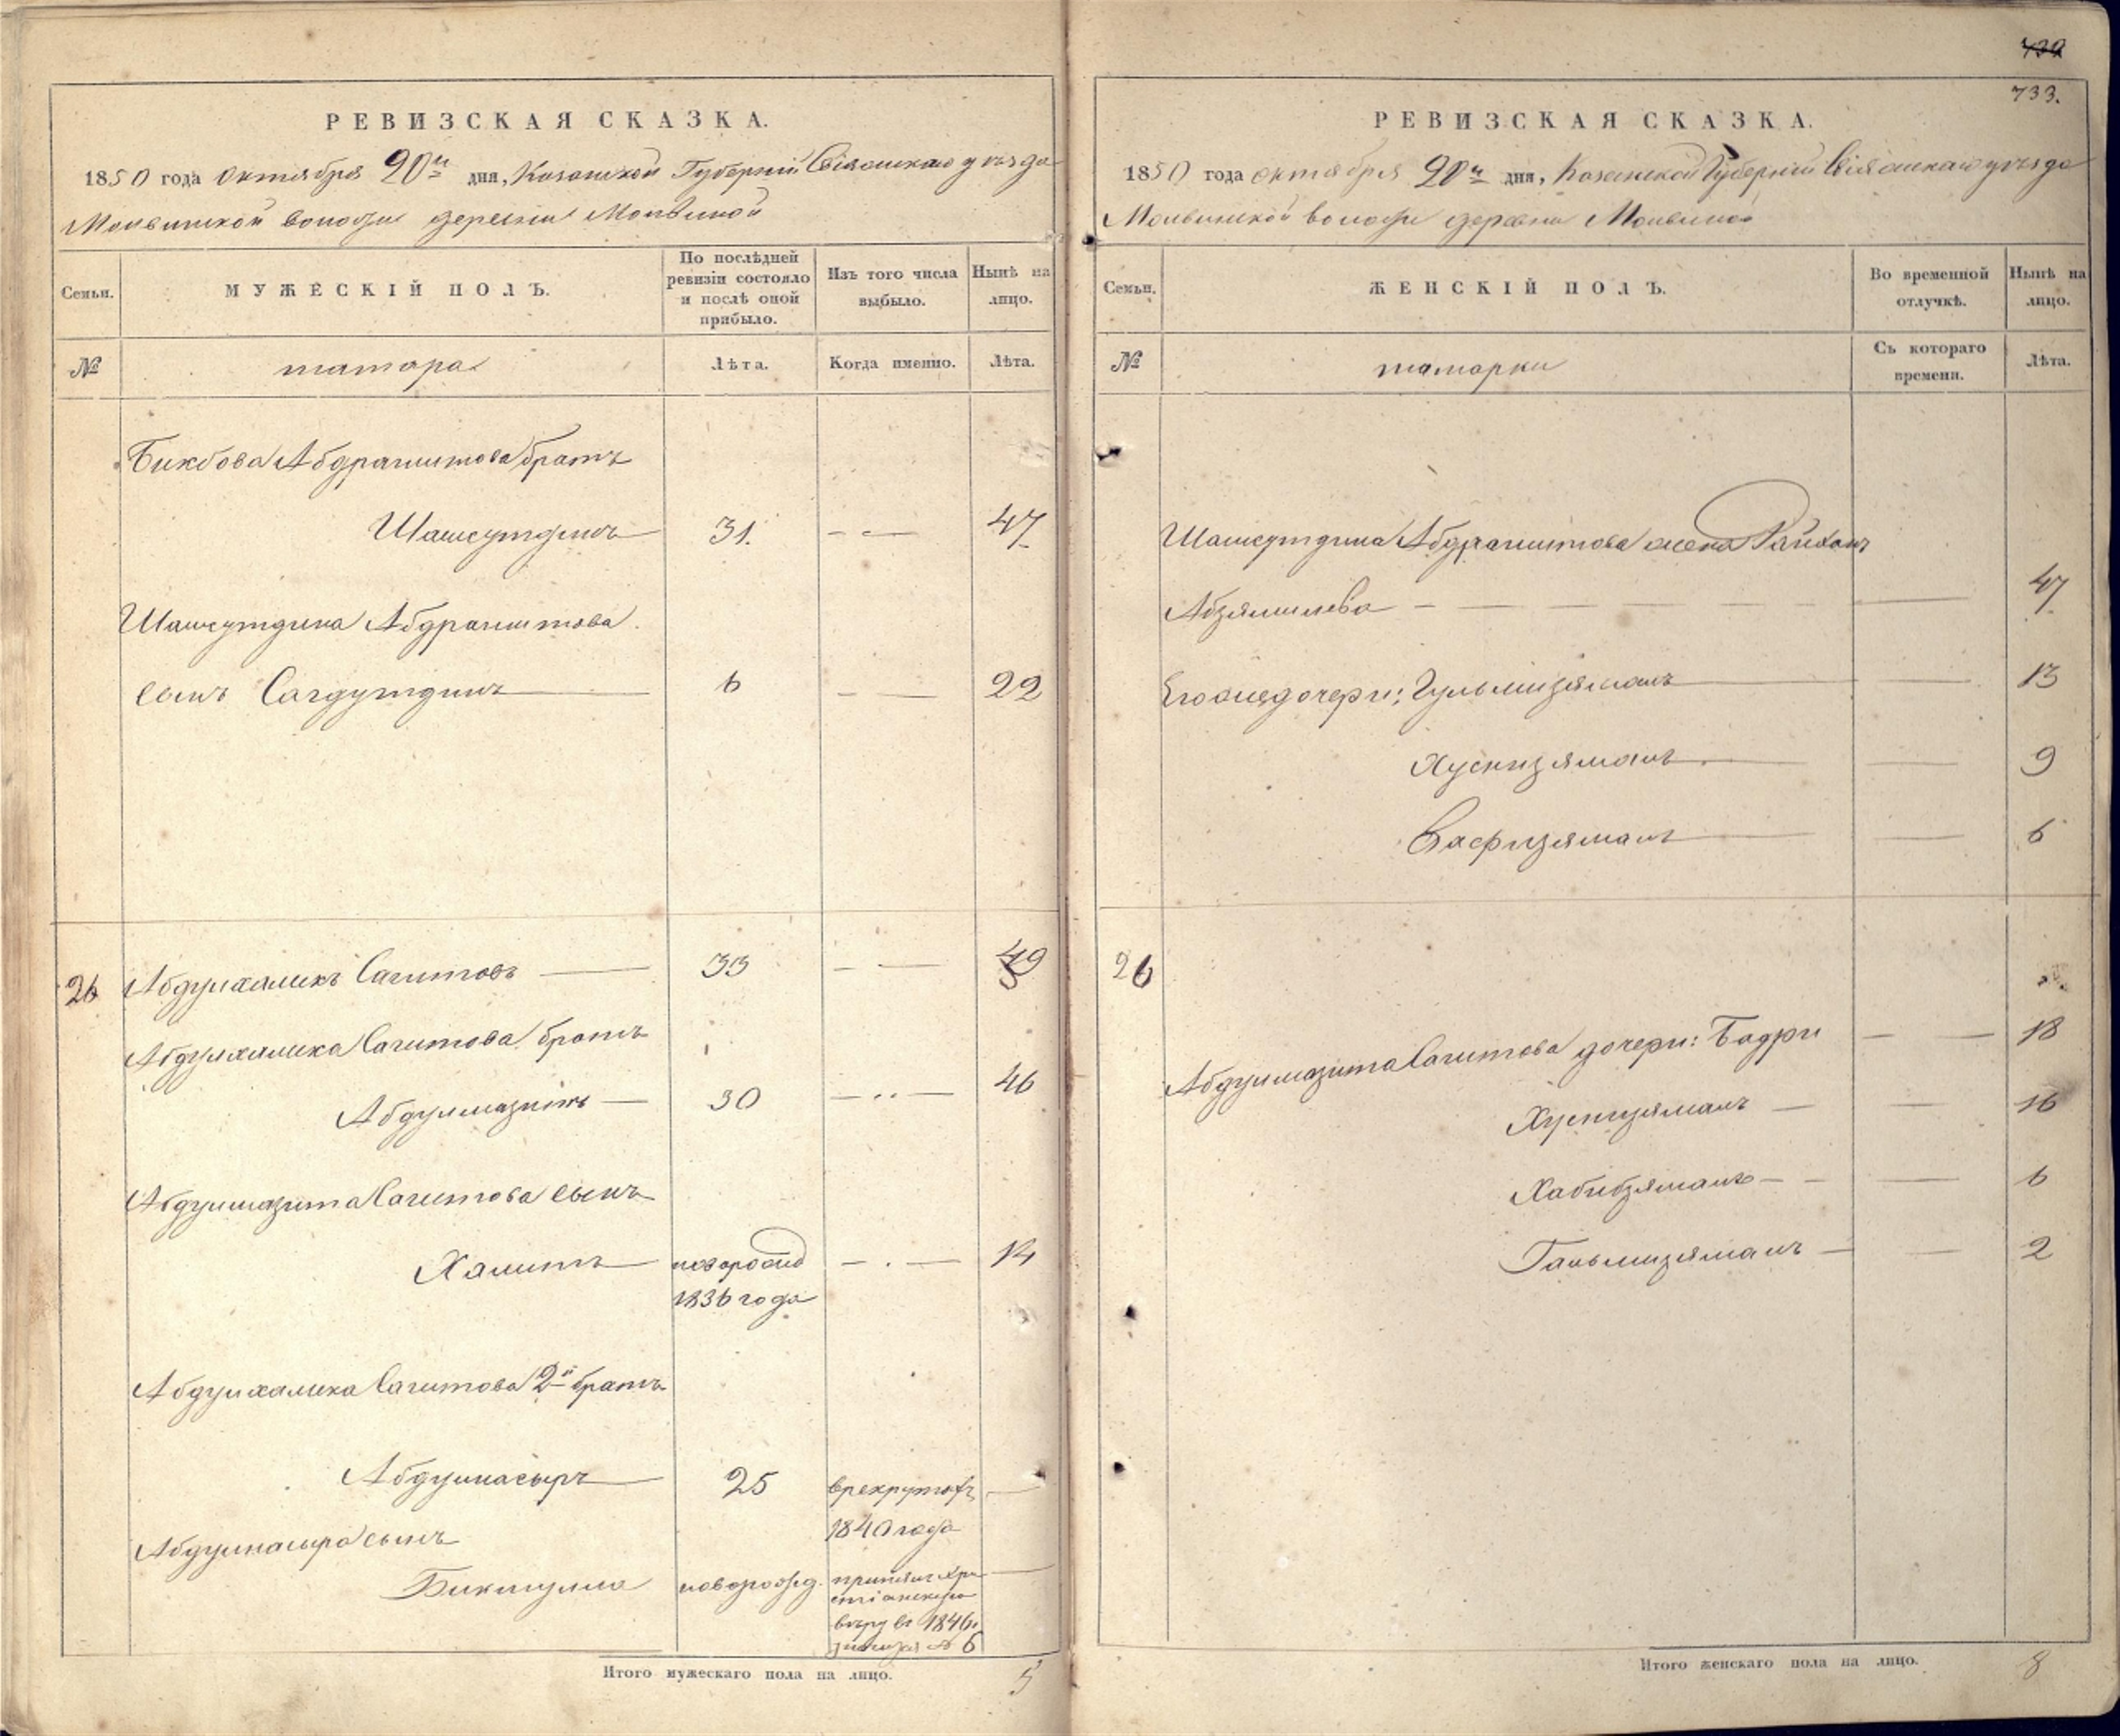 РЕВИЗСКАЯ СКАЗКА.
1850 года октября 20го дня, Казанской Губернии Свіяжскаго уѣзда
волости деревни
Семьи.
МУЖЕСКІЙ ПОЛЪ.
По послѣдней ревизіи состояло и послѣ оной прибыло.
Изъ того числа выбыло.
Нынѣ на лицо.
№
татара
Лѣта.
Когда именно.
Лѣта.
Бикбова Абдрашитова братъ
Шамсутдинъ 31. 47
Шамсутдина Абдрашитова
сынъ Сагдутдинъ 6 22
26 Абдулхаликъ Сагитовъ 33 49
Абдулхалика Сагитова братъ
Абдулмазитъ 30 46
Абдулмазита Сагитова сынъ
Халитъ новорожд 14
1836 года
Абдулхалика Сагитова 2й братъ
Абдулнасыръ 25 в рекрутахъ
1840 года
Абдулнасыра сынъ
Бикмулла новорожд. принялъ хри
стіанскую
вѣру въ 1846.
№ 6
Итого мужескаго пола на лицо. 5
732
733.
РЕВИЗСКАЯ СКАЗКА.
1850 года октября 20го дня, Казанской Губернии Свіяжскаго уѣзда
волости деревни
Семьи.
ЖЕНСКІЙ ПОЛЪ.
Во временной отлучкѣ.
Нынѣ на лицо.
№
татарки
Съ котораго времени.
Лѣта.
Шамсутдина Абдрашитова жена Райхань
Абзялилева 47
Его же дочери: Гульмизямалъ 13
Хуснизямалъ 9
Вафизямалъ 6
26
Абдулмазита Сагитова дочери: Бадри 18
Хуснизямалъ 16
Хабибзямалъ 6
Галмизямалъ 2
Итого женскаго пола на лицо. 8